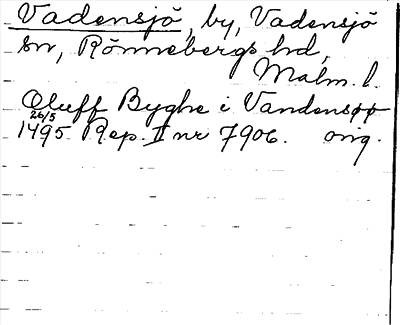 Vadensjö, by, Vadensjö
sn, Rönnebergs hd,
Malm. l.
Oluff Byghe i Vandensøø
26/5
1495 Rep. II nr 7906. orig.